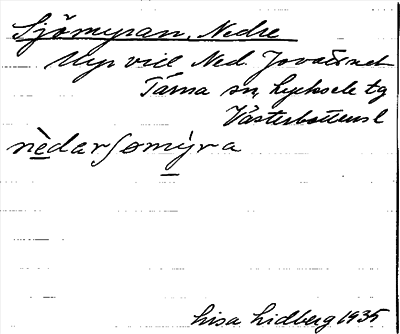 Sjömyran, Nedre
Myr vid Ned. Jovattnet
Tärna sn, Lycksele tg
Västerbottens l
nèdarʃomýra
Lisa Lidberg 1935